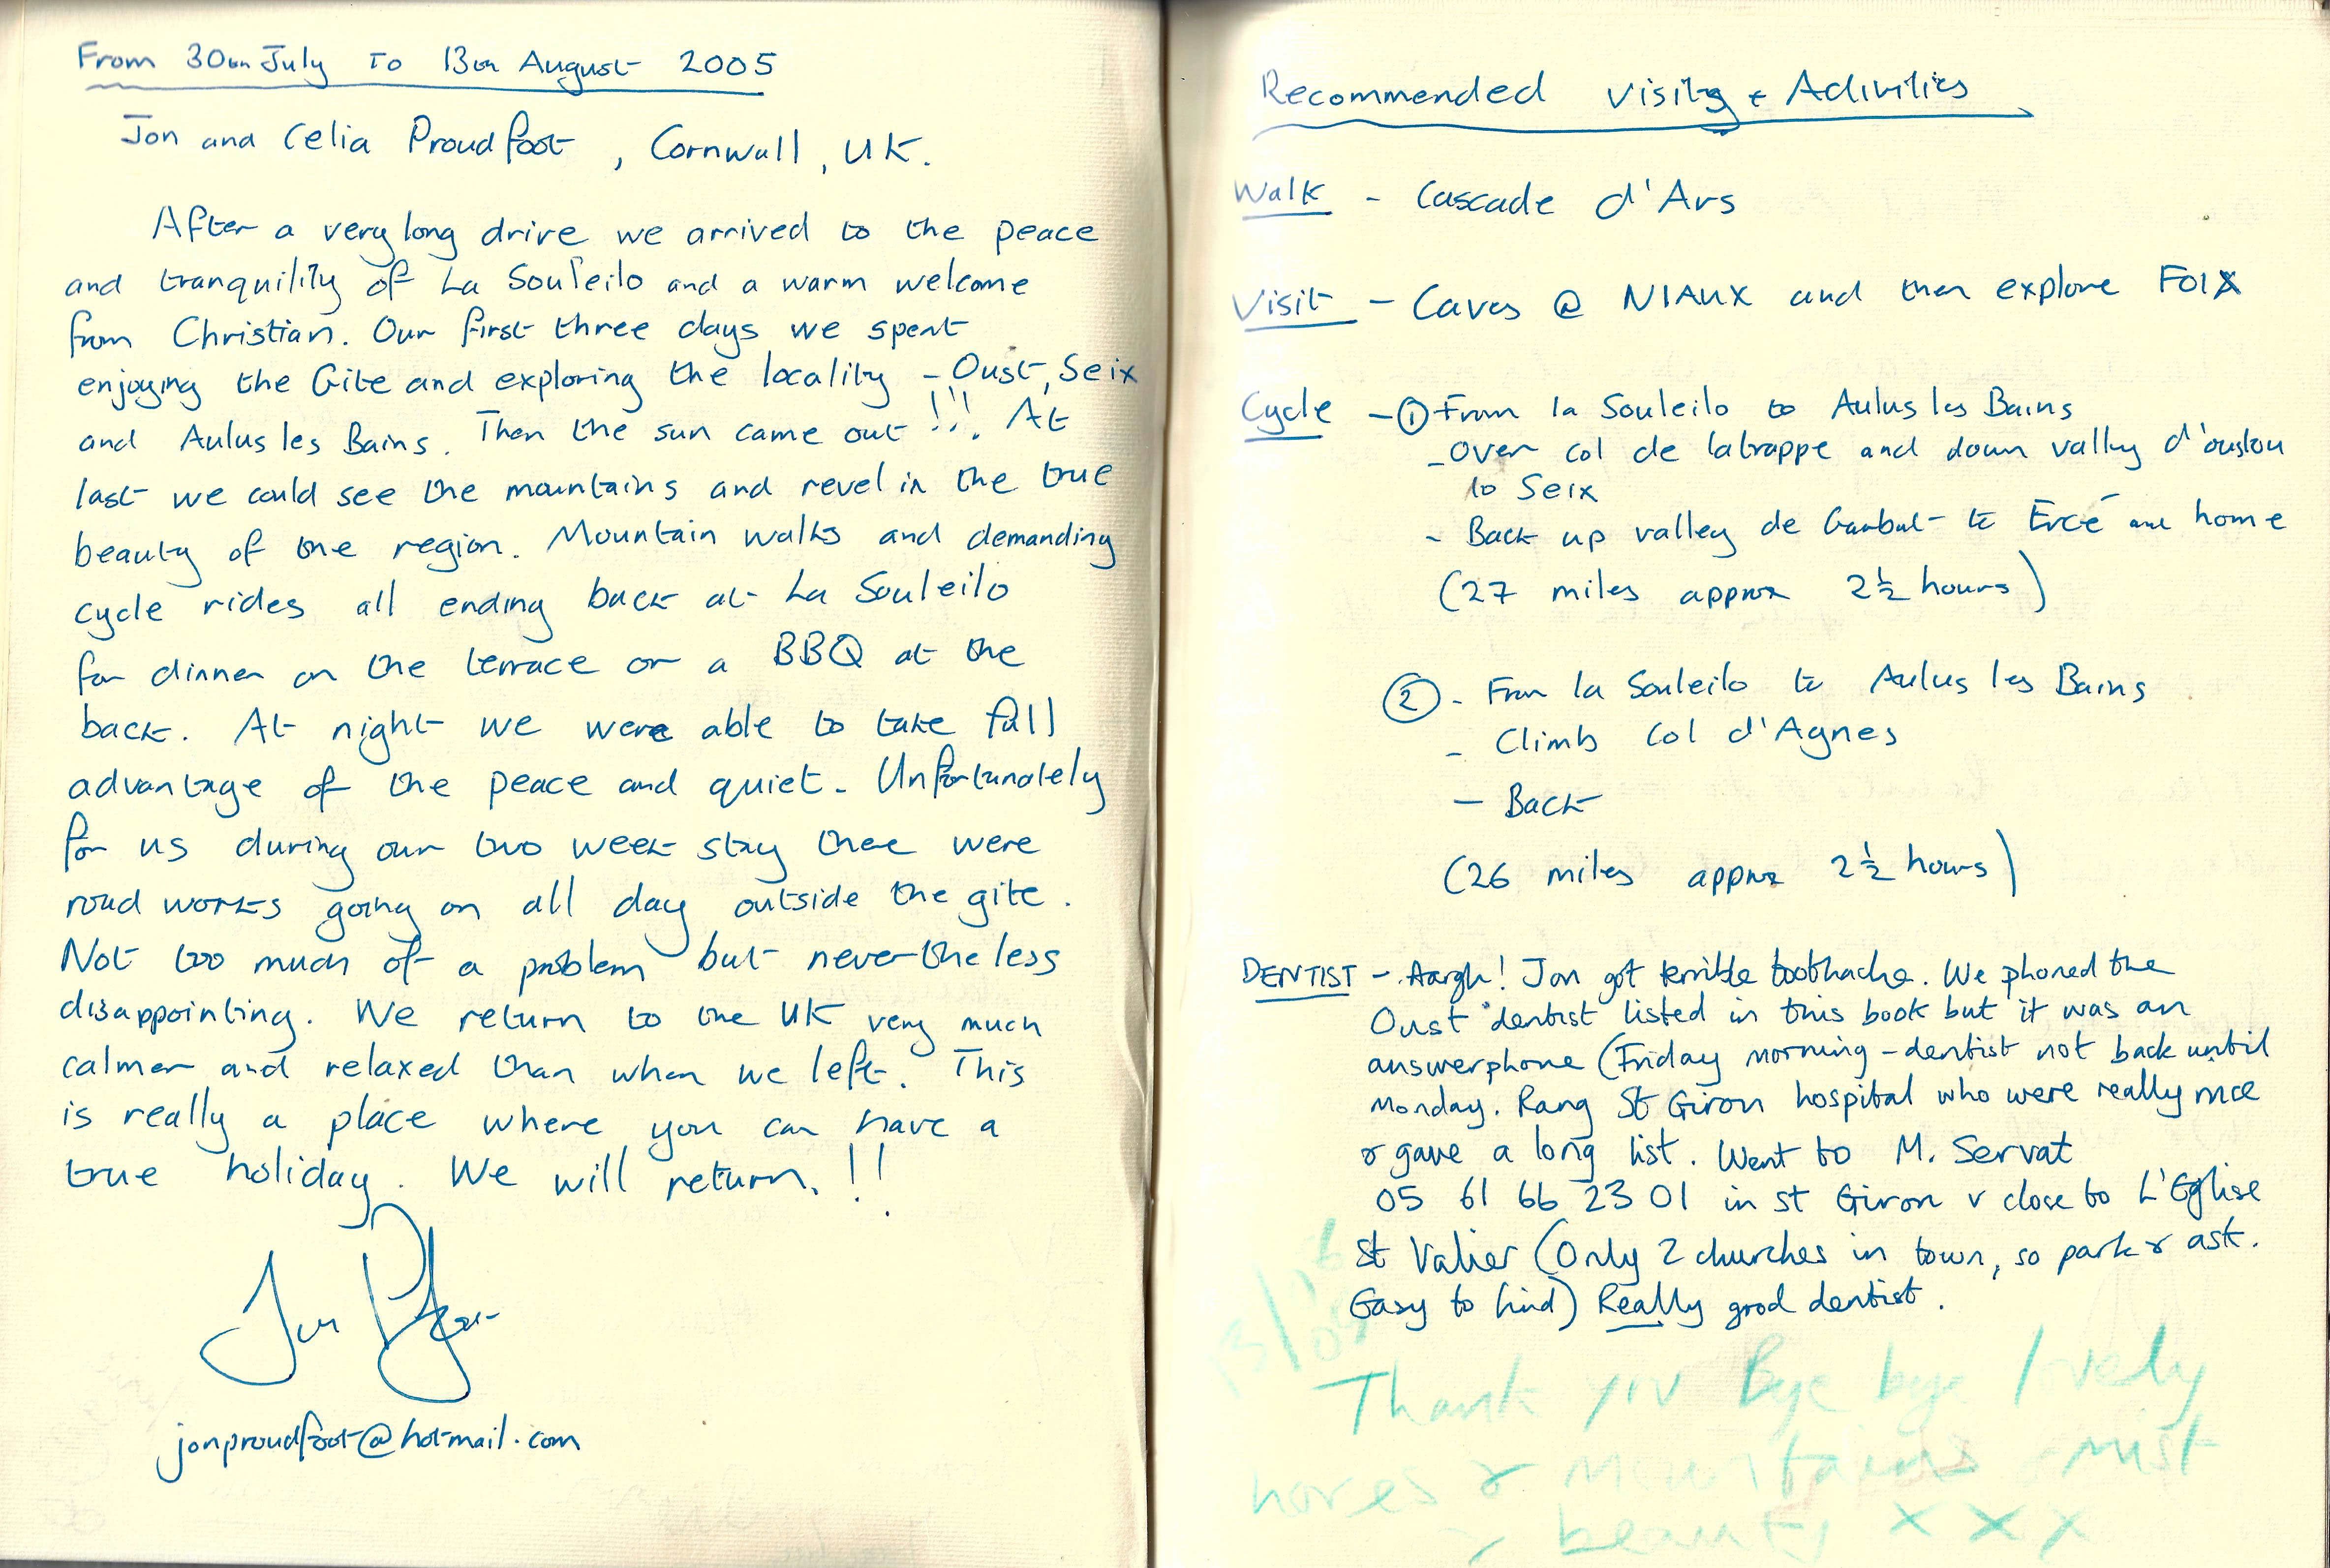 From 30th July to 13th August 2005
Jon and Celia Proudfoot, Cornwall, UK.
After a very long drive we arrived to the peace
and tranquility of La Souleilo and a warm welcome
from Christian. Our first three days we spent
enjoying the Gite and exploring the locality - Oust, Seix
and Aulus les Bains. Then the sun came out !!! At
last we could see the mountains and revel in the true
beauty of the region. Mountain walks and demanding
cycle rides all ending back at La Souleilo
for dinner on the terrace or a BBQ at the
back. At night we were able to take full
advantage of the peace and quiet. Unfortunately
for us during our two week stay there were
road works going on all day outside the gite.
Not too much of a problem but never-the less
disappointing. We return to the UK very much
calmer and relaxed than when we left. This
is really a place where you can have a
true holiday. We will return. !!
jonproudfoot@hotmail.com
Recommended Visits + Activities
Walk - Cascade d'Ars
Visit - Caves @ NIAUX and then explore FOIX
Cycle - ① From la Souleilo to Aulus les Bains
- Over Col de latrappe and down valley d'oustou
to Seix
- Back up valley de Garbet to Ercé and home
(27 miles approx 2½ hours)
② - From la Souleilo to Aulus les Bains
- Climb Col d'Agnes
- Back
(26 miles approx 2½ hours)
DENTIST - Aargh! Jon got terrible toothache. We phoned the
Oust dentist listed in this book but it was an
answerphone (Friday morning - dentist not back until
Monday. Rang St Giron hospital who were really nice
& gave a long list. Went to M. Servat
05 61 66 23 01 in St Giron v close to L'Eglise
St Valier (Only 2 churches in town, so park & ask.
Easy to find) Really good dentist.
Thank you Bye bye lovely
hores & Mountains mist
beauty x x x